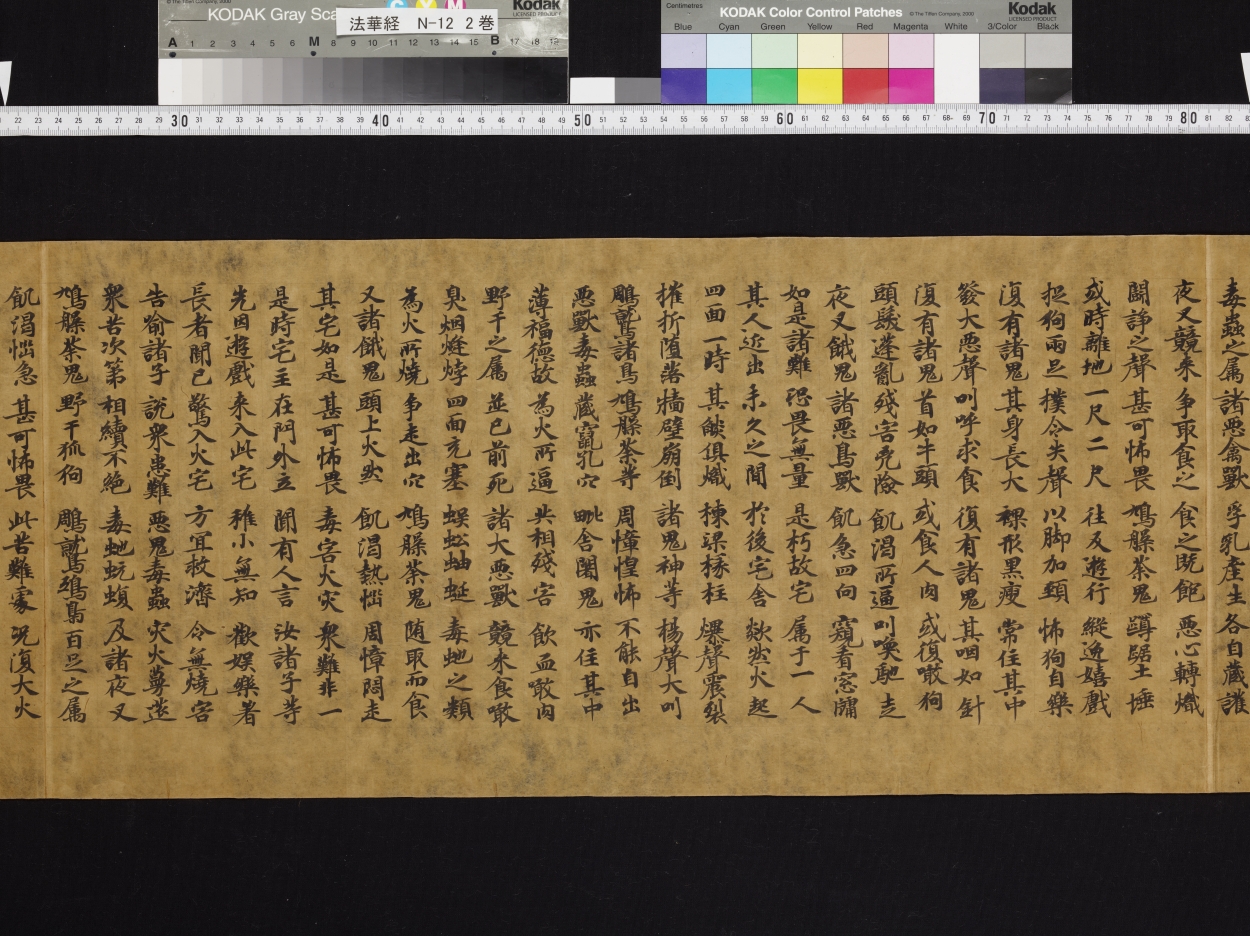 KODAK Gray Sca
C Y M
Kodak
LICENSED PRODUCT
法華経 N-12 2巻
A 1 2 3 4 5 6 M 8 9 10 11 12 13 14 15 B 17 18 19
Centimetres
KODAK Color Control Patches
© The Tiffen Company, 2000
Kodak
LICENSED PRODUCT
Blue Cyan Green Yellow Red Magenta White 3/Color Black
22 23 24 25 26 27 28 29 30 31 32 33 34 35 36 37 38 39 40 41 42 43 44 45 46 47 48 49 50 51 52 53 54 55 56 57 58 59 60 61 62 63 64 65 66 67 68 69 70 71 72 73 74 75 76 77 78 79 80 81 82
毒蟲之属 諸悪禽獸 孚乳産生 各自蔵護
夜叉競来 争取食之 食之既飽 悪心轉熾
鬪諍之聲 甚可怖畏 鳩槃荼鬼 蹲踞土埵
或時離地 一尺二尺 往及遊行 縦逸嬉戲
捉狗兩足 撲令失聲 以脚加頸 怖狗自樂
復有諸鬼 其身長大 裸形黒瘦 常住其中
發大悪聲 叫呼求食 復有諸鬼 其咽如針
復有諸鬼 首如牛頭 或食人肉 或復噉狗
頭髮蓬亂 殘害兇險 飢渇所逼 叫喚馳走
夜叉餓鬼 諸悪鳥獸 飢急四向 窺看窓牖
如是諸難 恐畏無量 是朽故宅 属于一人
其人近出 未久之間 於後宅舎 欻然火起
四面一時 其燄俱熾 棟梁椽柱 爆聲震裂
摧折堕落 墻壁崩倒 諸鬼神等 楊聲大叫
鵰鷲諸鳥 鳩槃荼等 周慞惶怖 不能自出
悪獸毒蟲 蔵竄孔穴 毗舎闍鬼 亦住其中
薄福德故 為火所逼 共相殘害 飲血噉肉
野干之属 並已前死 諸大悪獸 競来食噉
臭烟熢㶿 四面充塞 蜈蚣蚰蜒 毒虵之類
為火所燒 争走出穴 鳩槃荼鬼 随取而食
又諸餓鬼 頭上火然 飢渇熱惱 周慞悶走
其宅如是 甚可怖畏 毒害火灾 衆難非一
是時宅主 在門外立 聞有人言 汝諸子等
先因遊戲 来入此宅 稚小無知 歡娯樂著
長者聞已 驚入火宅 方冝救濟 令無燒害
告喻諸子 説衆患難 悪鬼毒蟲 灾火蔓莚
衆苦次第 相續不絶 毒虵蚖蝮 及諸夜叉
鳩槃荼鬼 野干狐狗 鵰鷲鵄鳥 百足之属
飢渇惱急 甚可怖畏 此苦難處 況復大火